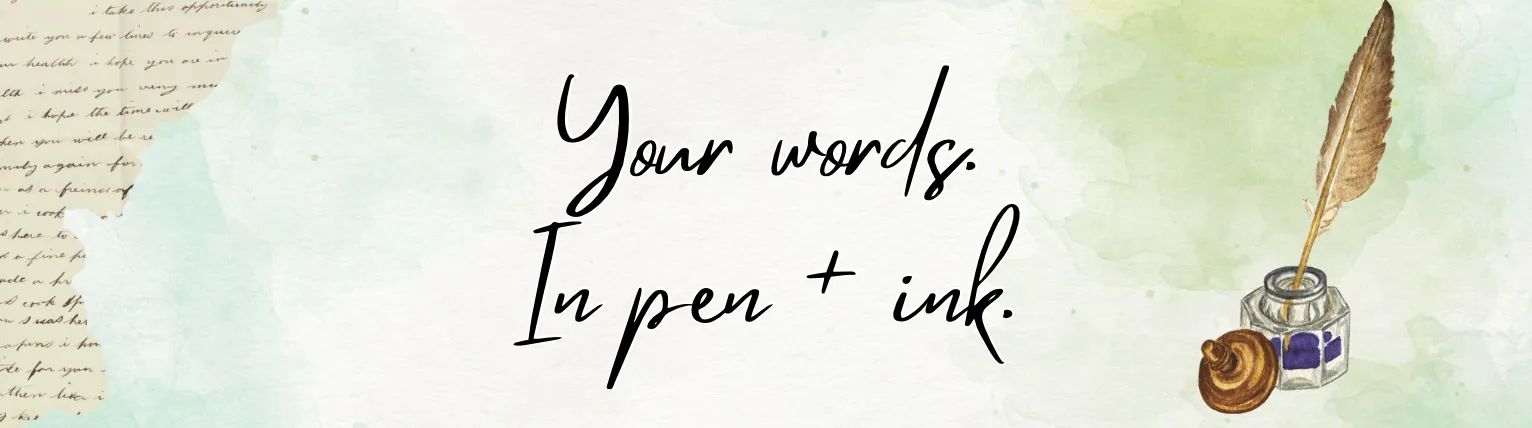 i take this opportunity
write you a few lines to inquire
health i hope you are in
i miss you very
i hope the time will
when you will be
again for
as a freind of
i cook
here to
a fine
made a
cook
I was her
i
for your
then
Your words.
In pen + ink.